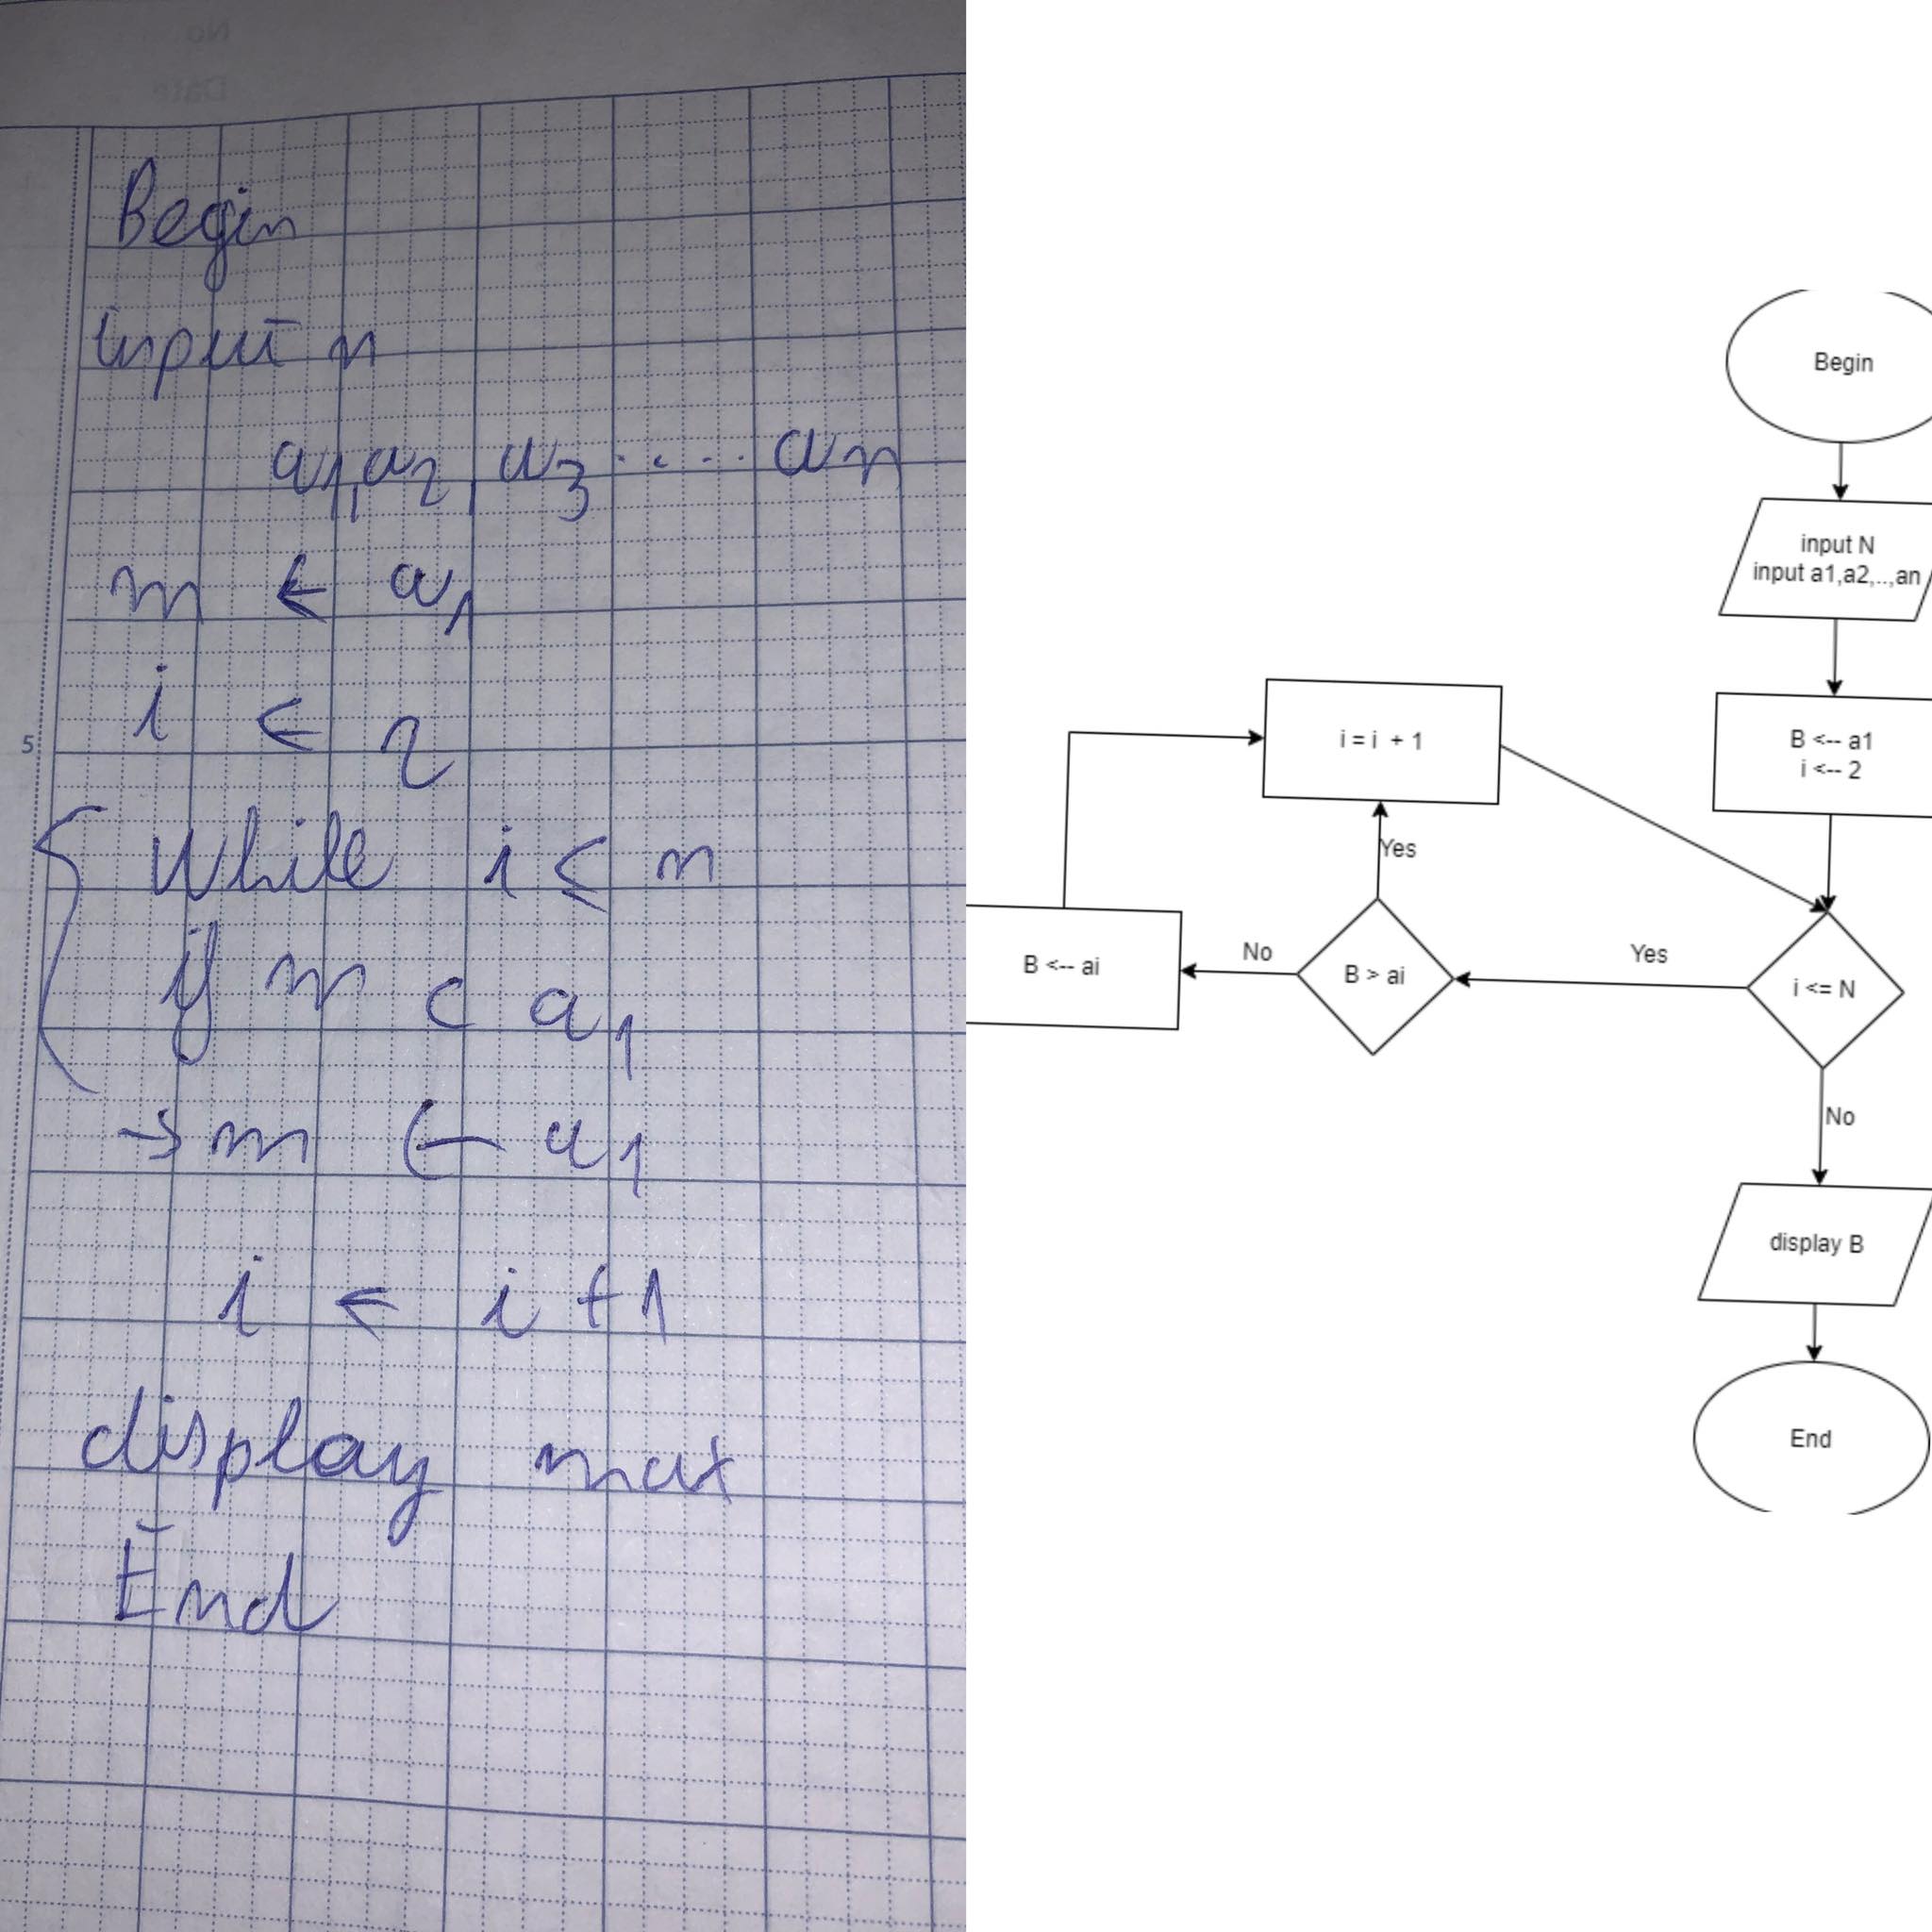 No
Date
Begin
input n
a1, a2, a3 ..... an
m ← a1
i ← 2
5
While i ≤ n
if m < a1
→ m ← a1
i ← i +1
display max
End
Begin
input N
input a1,a2,..,an
B <-- a1
i <-- 2
i = i + 1
Yes
B <-- ai
No
B > ai
Yes
i <= N
No
display B
End